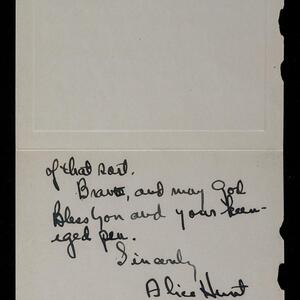 of that sort.
Bravo, and may God
Bless You and your keen-
eged pen.
Sincerely
Alice Hunt